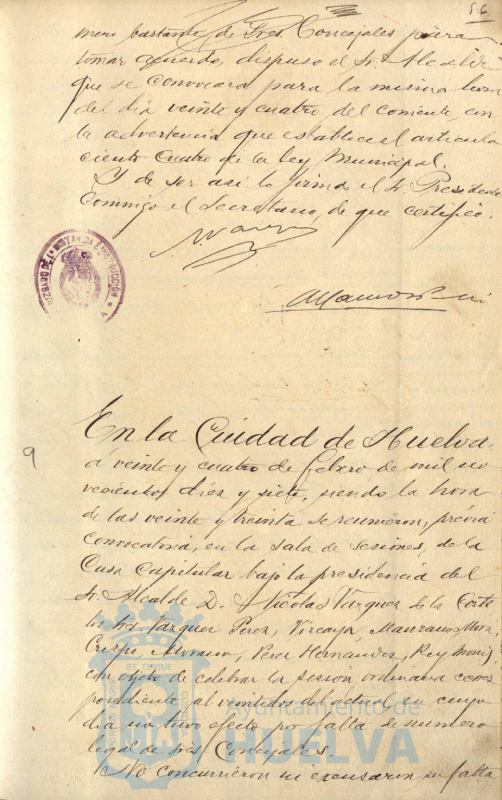 56
mero bastante de Sres. Concejales para
tomar acuerdo, dispuso el Sr. Alcalde
que se convocara para la misma hora
del dia veinte y cuatro del corriente, con
la advertencia que establece el articulo
ciento cuatro de la ley Municipal.
Y de ser asi lo firma el Sr. Presidente
conmigo el Secretario, de que certifico.
JUZGADO DE 1ª INSTANCIA E INSTRUCCIÓN
9
En la Ciudad de Huelva
á veinte y cuatro de febrero de mil no
vecientos diez y siete, siendo la hora
de las veinte y treinta se reunieron, prévia
convocatoria, en la sala de sesiones, de la
Casa Capitular bajo la presidencia del
Sr. Alcalde D. Nicolas Vázquez de la Corte
los Sres. Vázquez Perez, Vizcaya, Manzano Mora,
Crespo, Moreno, Perez Hernandez, Rey Moniz
con objeto de celebrar la sesión ordinaria corres
pondiente al veintidos del actual, en cuyo
dia no tuvo efecto por falta de numero
legal de Sres. Concejales.
No concurrieron ni excusaron su falta
Ayuntamiento de
HUELVA